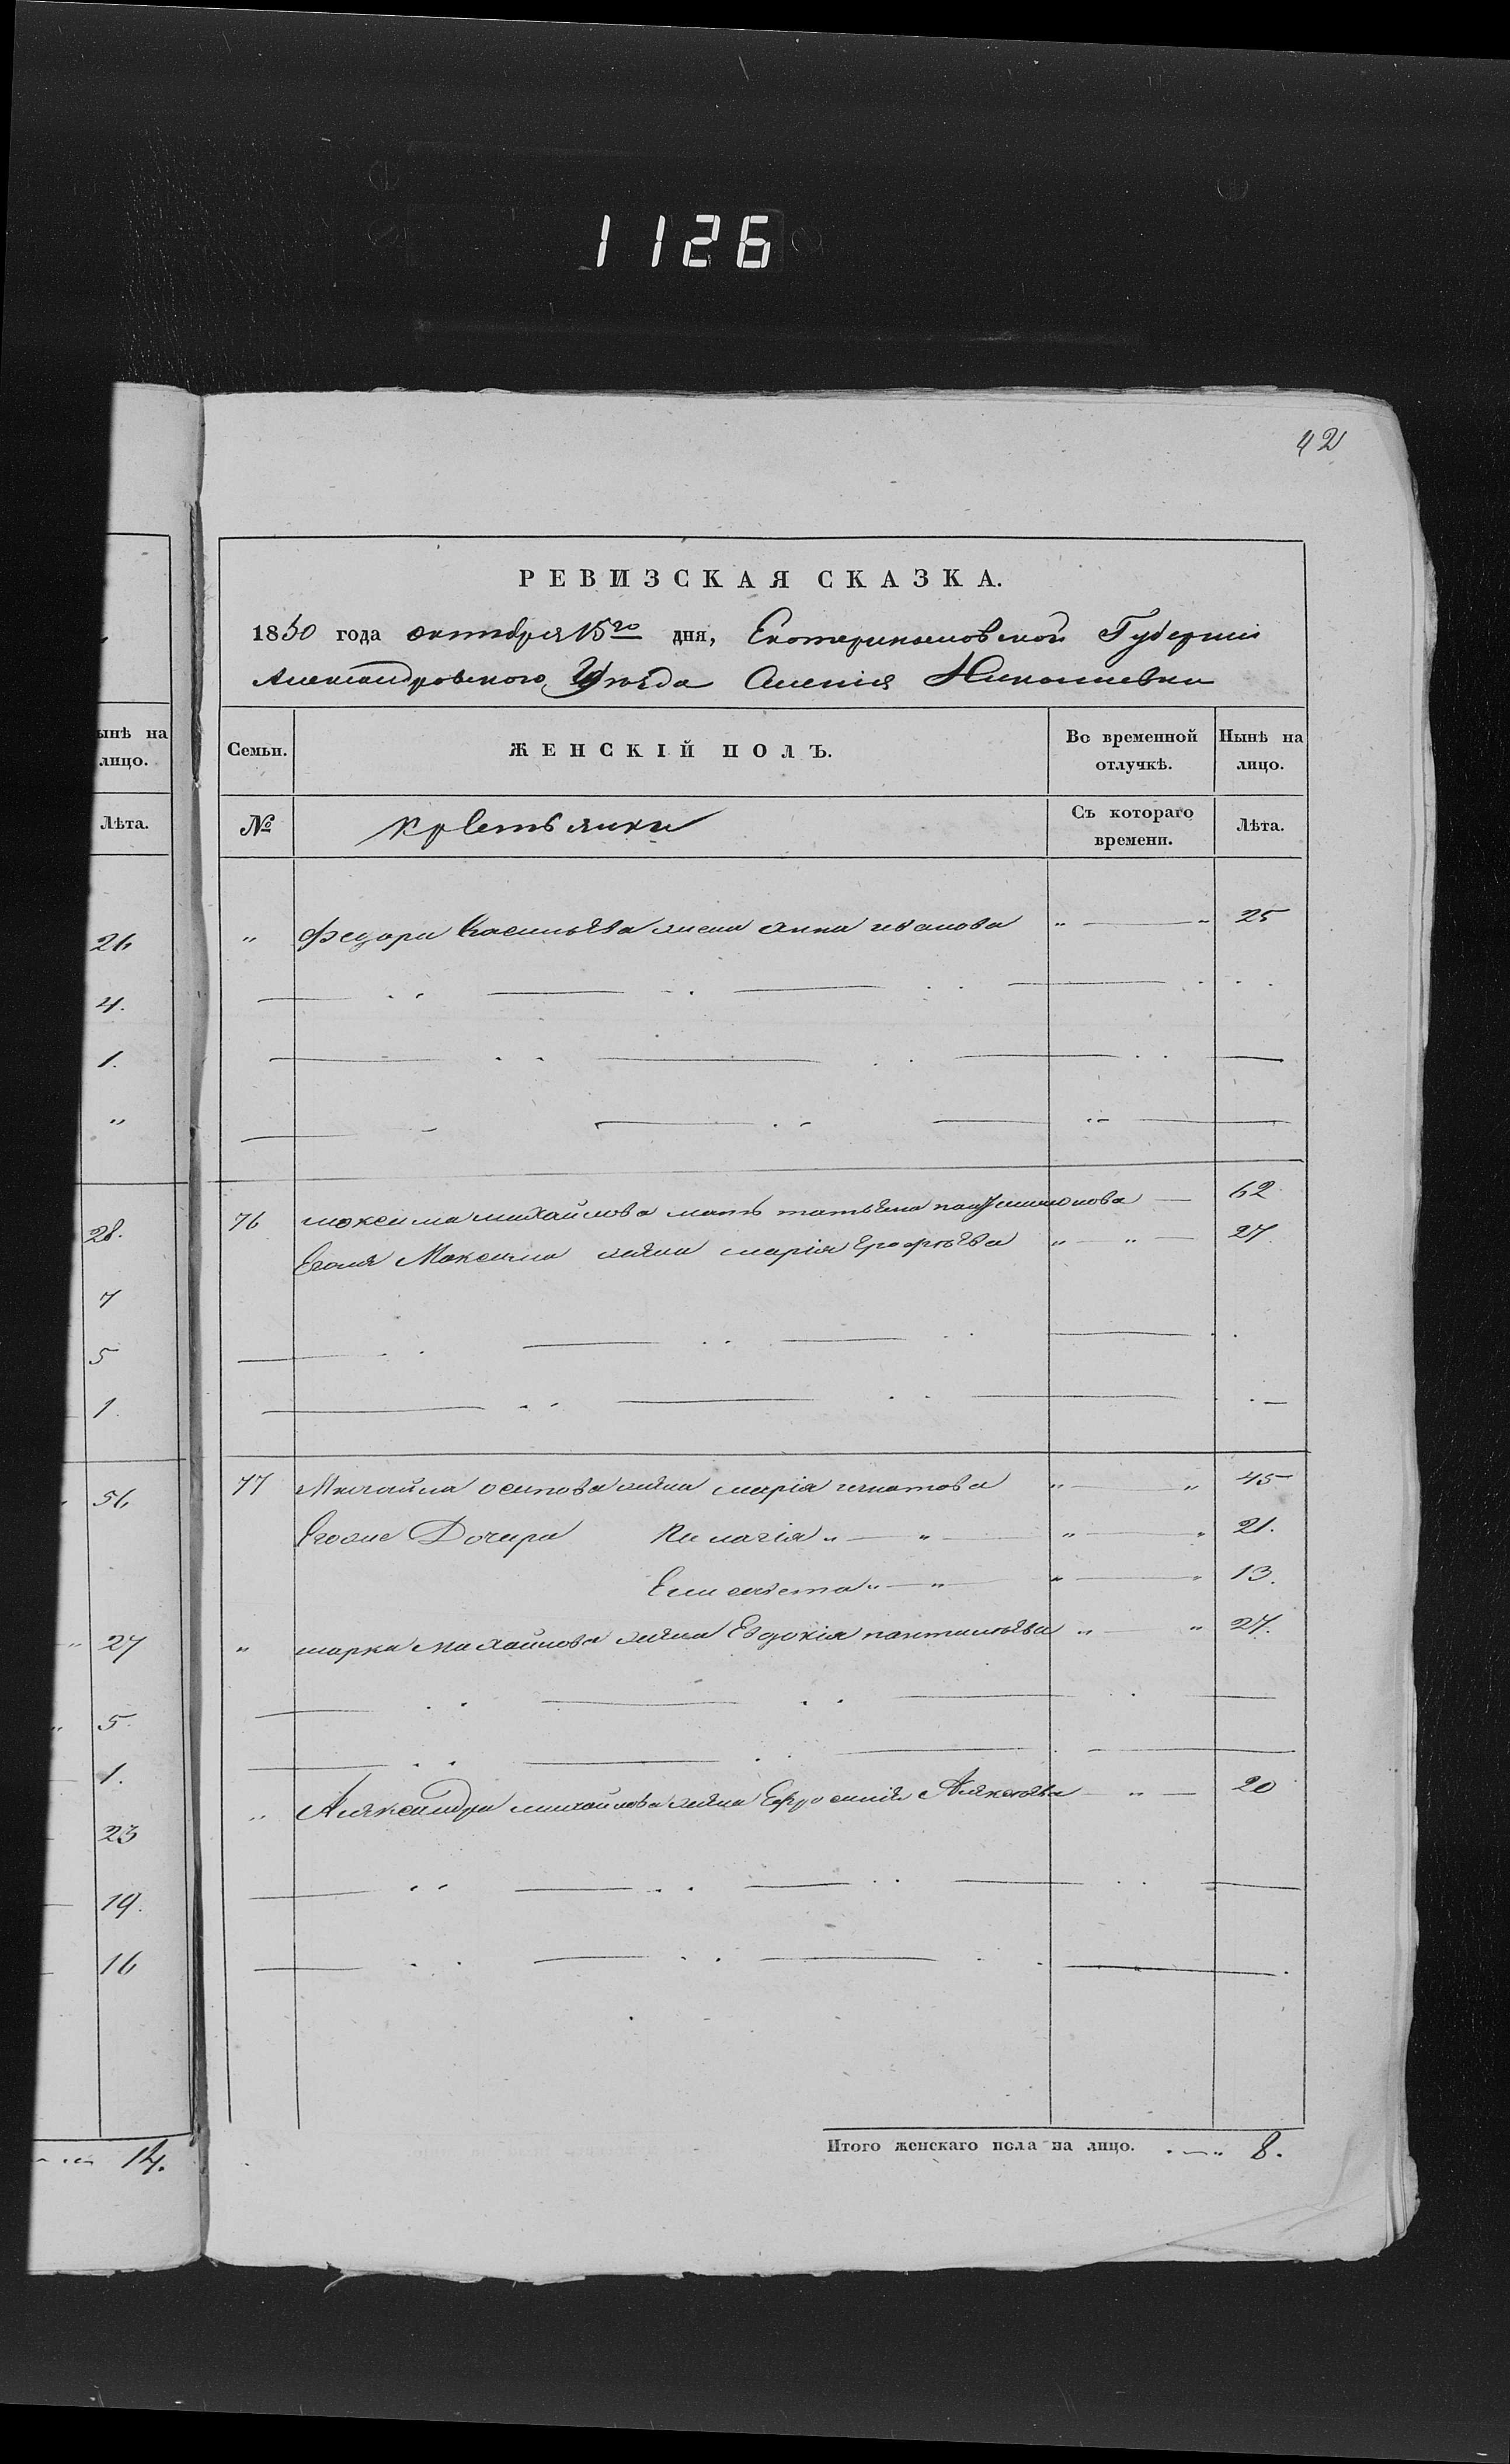 1126
42
РЕВИЗСКАЯ СКАЗКА.
1850 года октября 15го дня, Екатеринославской Губерніи
Александровского Уѣзда Николаевки
ынѣ на лицо.
Лѣта.
26
4.
1.
"
28.
7
5
1.
56
" 27
" 5.
1.
23
19.
16
14.
Семьи. ЖЕНСКІЙ ПОЛЪ. Во временной отлучкѣ. Нынѣ на лицо.
№ Крестьянки Съ котораго времени. Лѣта.
" Федора Васильѣва жена анна иванова " — " 25
76 максима михайлова мать татьѣна 62
Егоже Максима жѣна марія Ерофѣѣва " — " — 27
77 Михайла осипова жѣна марія игнатова " — " 45
Егоже Дочери Пилагія " — " — " — " 21.
Елисавета " — " " — " 13.
" марка михайлова жѣна Евдокія пантильѣва " — " 27.
" Александра михайлова жѣна Ефросинія Алексѣѣва — " — 20
Итого женскаго пола на лицо. 8.